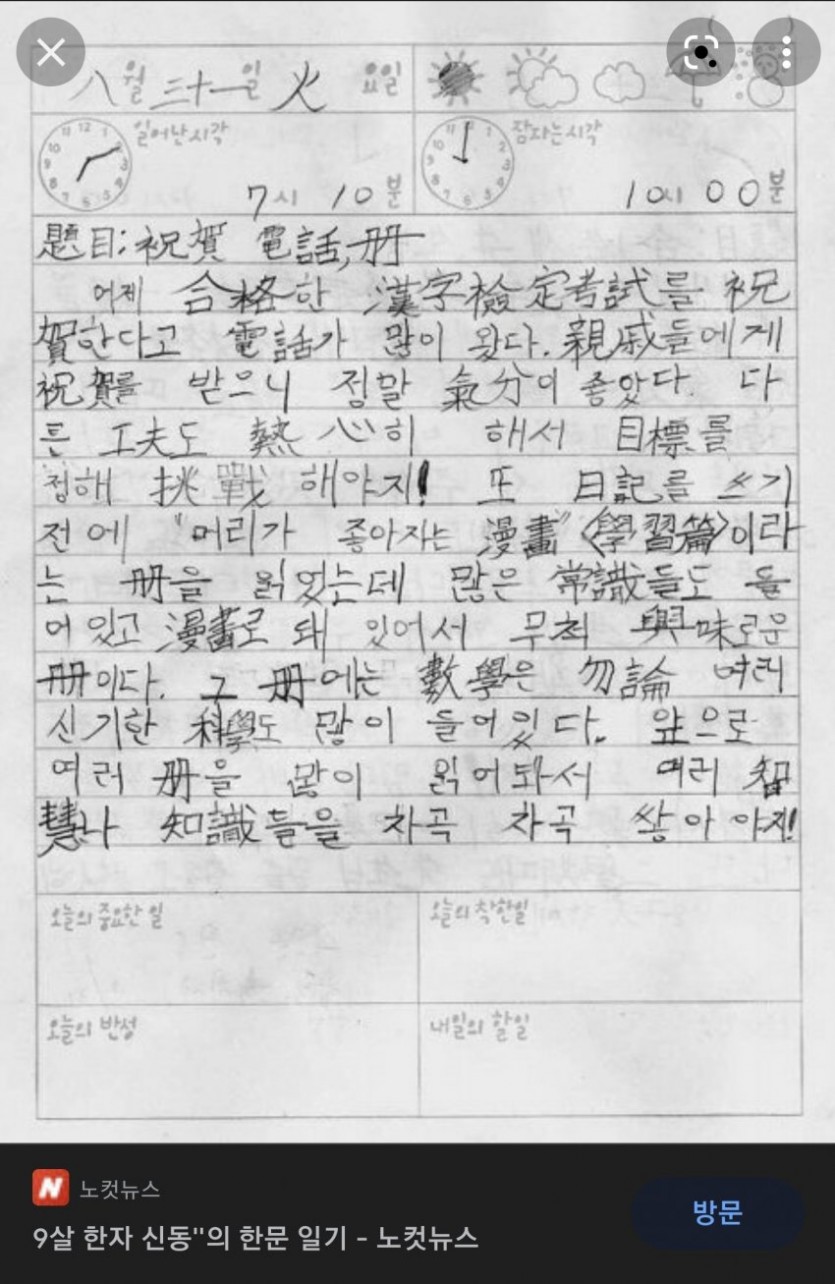 八월 三十一일 火 요일
일어난시각
7시 10분
잠자는시각
10시 00분
題目: 祝賀 電話, 册
어제 合格한 漢字檢定考試를 祝
賀한다고 電話가 많이 왔다. 親戚들에게
祝賀를 받으니 정말 氣分이 좋았다. 다
른 工夫도 熱心히 해서 目標를
정해 挑戰해야지! 또 日記를 쓰기
전에 "머리가 좋아지는 漫畫" <學習篇>이라
는 册을 읽었는데 많은 常識들도 들
어있고 漫畫로 돼 있어서 무척 興味로운
册이다. 그 册에는 數學은 勿論 여러
신기한 科學도 많이 들어있다. 앞으로
여러 册을 많이 읽어봐서 여러 智
慧나 知識들을 차곡 차곡 쌓아야지!
오늘의 중요한 일
오늘의 착한일
오늘의 반성
내일의 할일
노컷뉴스
9살 한자 신동"의 한문 일기 - 노컷뉴스
방문